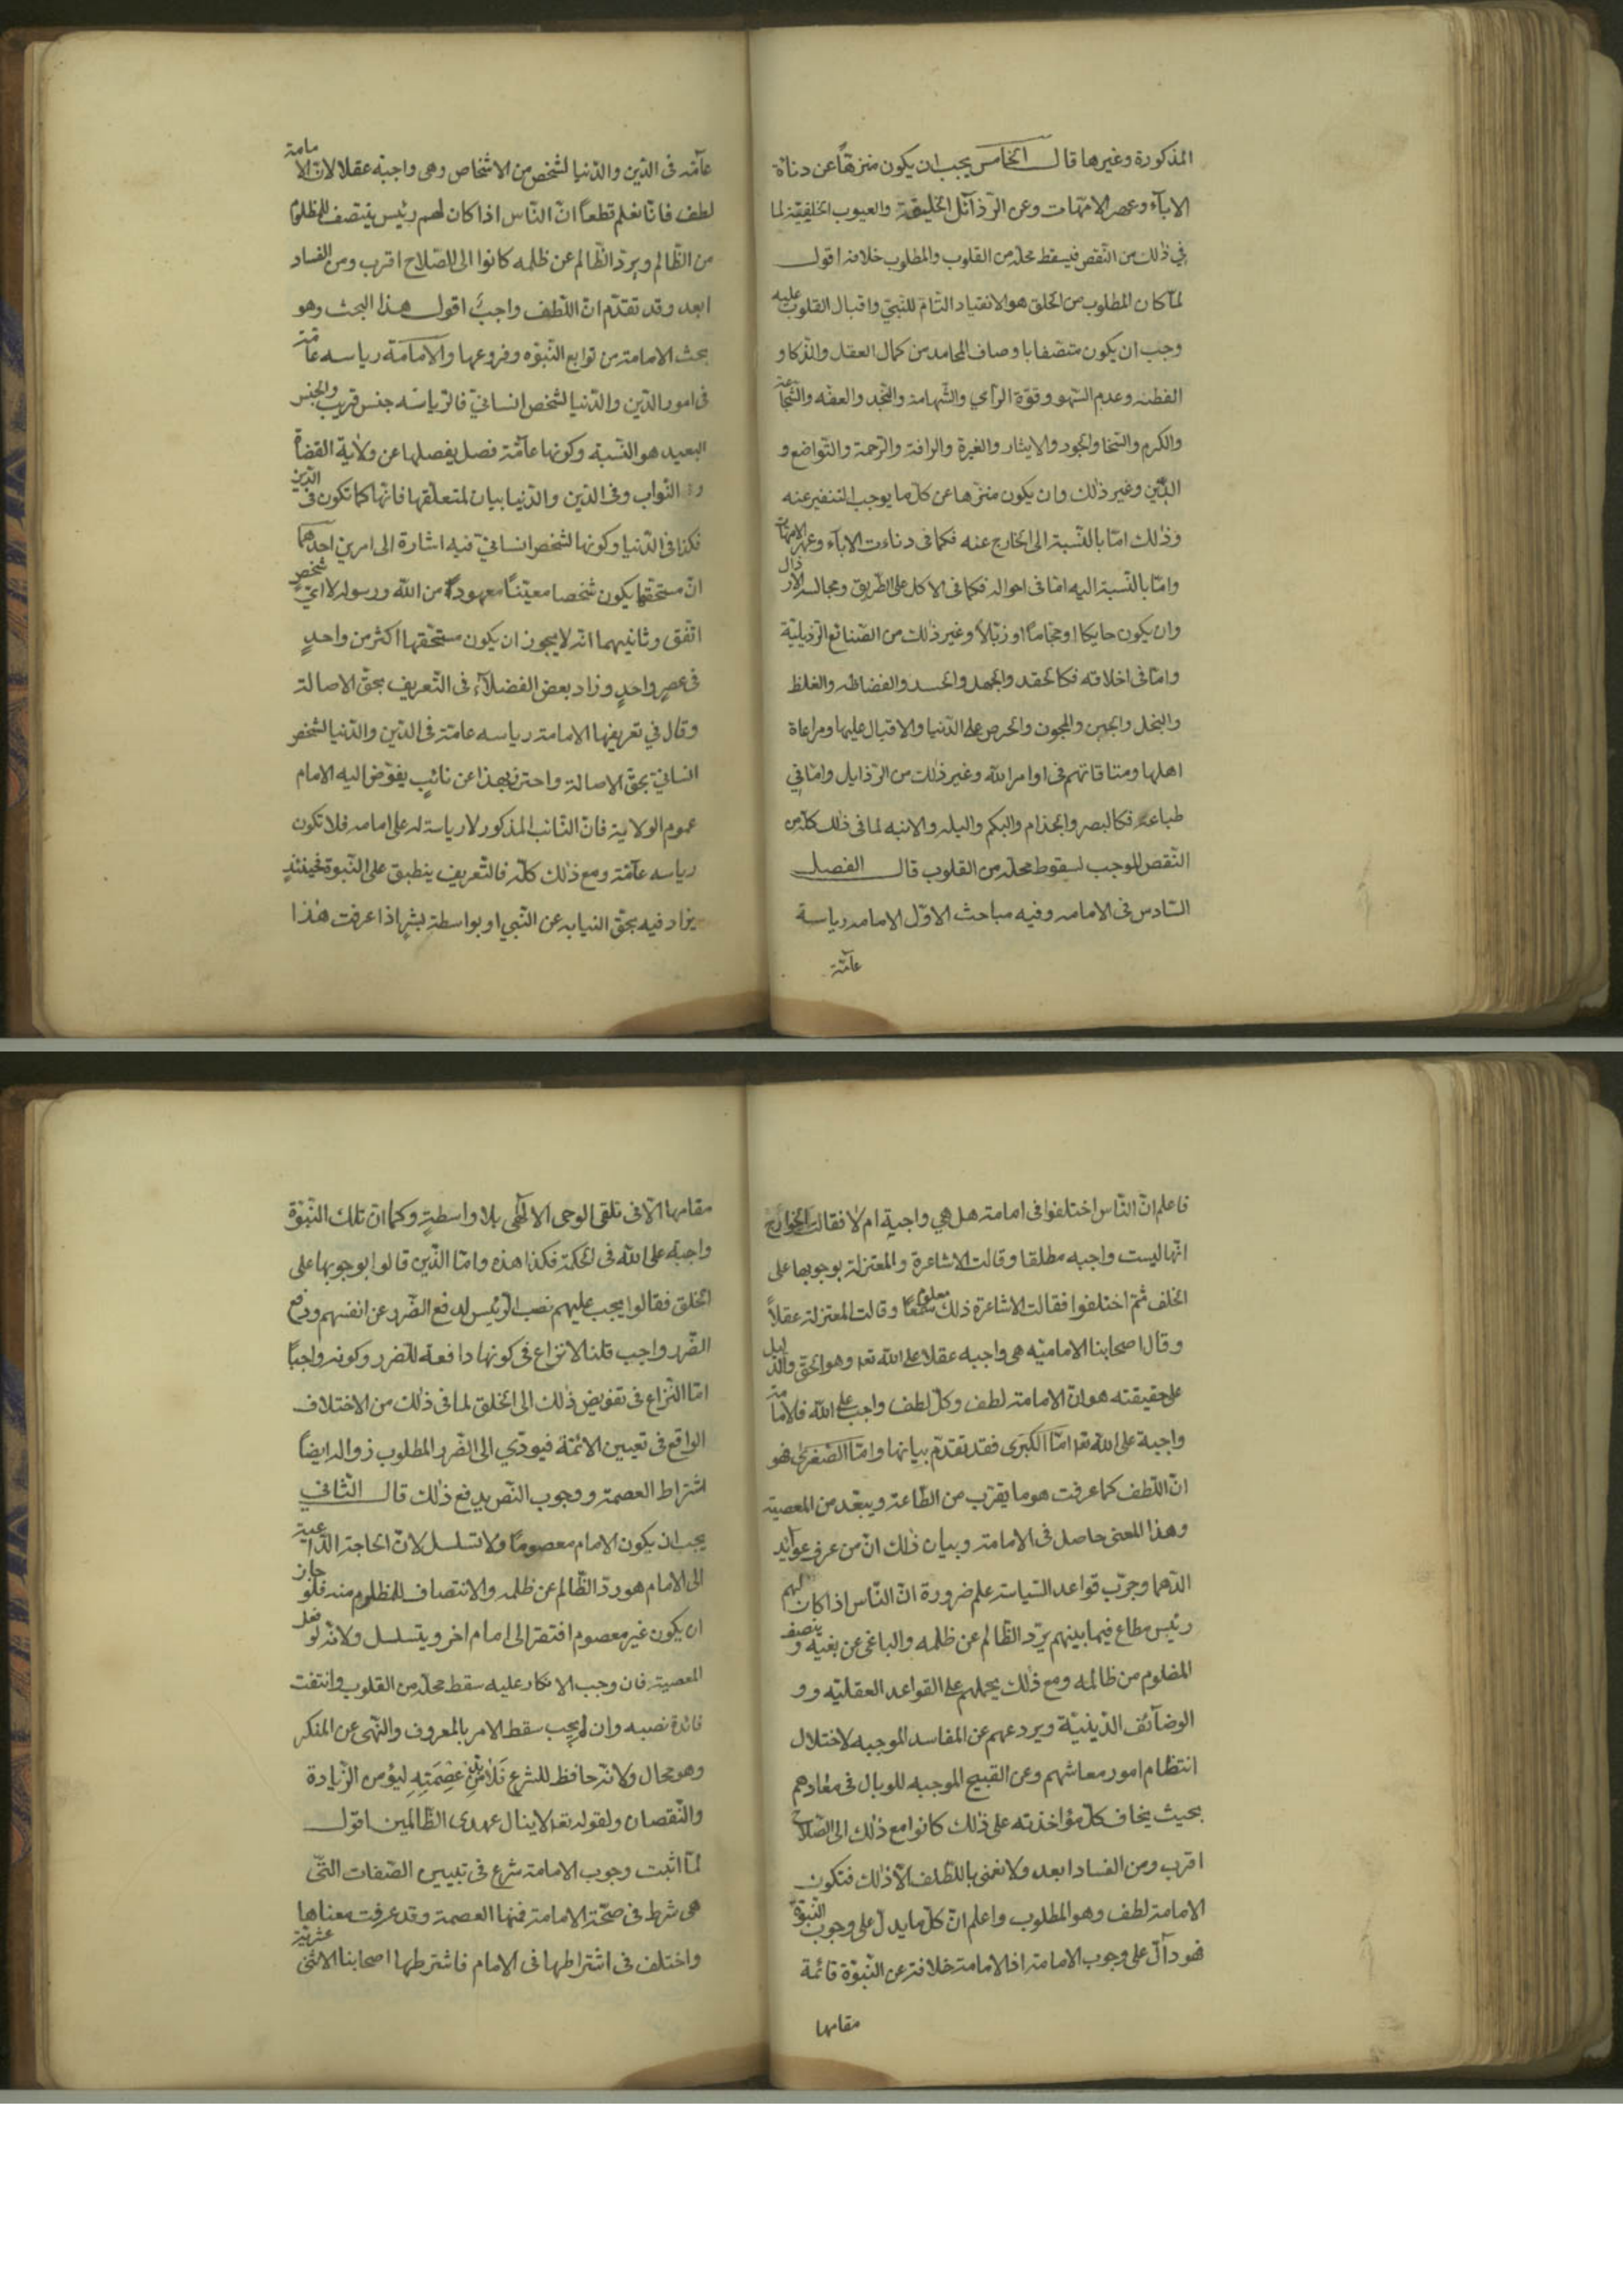 المذكورة وغيرها قال الخامس يجب ان يكون منزهاً عن دناءة
الاباء وعهر الامّهات وعن الرّذآئل الخليقة والعيوب الخلقيّة لما
في ذلك من النّقص فيسقط محلّه من القلوب والمطلوب خلافه اقول
لمّا كان المطلوب من الخلق هو الانقياد التّام للنّبيّ واقبال القلوب عليه
وجب ان يكون متّصفا باوصاف المحامد من كمال العقل والذّكا و
الفطنه وعدم السّهو وقوّة الرّأي والشّهامة والنّجد والعفّه والشّجاعة
والكرم والسّخا والجود والايثار والغيرة والرافة والرّحمة والتّواضع و
اللّين وغير ذلك وان يكون منزّها عن كلّ ما يوجب التنفير عنه
وذلك امّا بالنّسبة الى الخارج عنه فكما فى دناءت الاباء وعهر الامّهات
وامّا بالنّسبة اليه امّا فى احواله فكما فى الاكل على الطّريق ومجالسة الارذال
وان يكون حايكا او حجّاماً او زبّالاً وغير ذلك من الصّنائع الرّذيليّة
وامّا فى اخلاقه فكالحقد والجهل والحسد والفضاظه والغلظ
والبخل والجبن والمجون والحرص على الدّنيا والاقبال عليها ومراعاة
اهلها ومناقاتهم فى اوامر الله وغير ذلك من الرّذايل وامّا في
طباعه فكالبصر والجذام والبكم والبله والابنه لما فى ذلك كلّه من
النّقص الموجب لسقوط محلّه من القلوب قال الفصل
السّادس فى الامامه وفيه مباحث الاوّل الامامه رياسة
عآمّة
عآمّه فى الدّين والدّنيا لشخص من الاشخاص وهى واجبة عقلا لانّ الامامة
لطف فانّا نعلم قطعاً انّ النّاس اذا كان لهم رئيس ينتصف للمظلوم
من الظّالم ويردّ الظّالم عن ظلمه كانوا الى الصّلاح اقرب ومن الفساد
ابعد وقد تقدّم انّ اللّطف واجبٌ اقول هذا البحث وهو
بحث الامامة من توابع النّبوّه وفروعها والامامة رياسه عامّة
فى امور الدّين والدّنيا لشخص انسانيّ فالرّياسه جنس قريب والجنس
البعيد هو النّسبة وكونها عآمّة فصل يفصلها عن ولاية القضاة
و النّواب وفى الدّين والدّنيا بيان لمتعلّقها فانّها كما تكون فى الدّين
فكذا فى الدّنيا وكونها لشخص انسانيّ فيه اشارة الى امرين احدهما
انّ مستحقّها يكون شخصا معيّناً معهوداً من الله ورسوله لا ايّ شخصٍ
اتّفق وثانيهما انّه لا يجوز ان يكون مستحقّها اكثر من واحدٍ
فى عصرٍ واحدٍ وزاد بعض الفضلاء فى التّعريف بحقّ الاصالة
وقال في تعريفها الامامة رياسه عامّة فى الدّين والدّنيا لشخص
انسانيّ بحقّ الاصالة واحترز بهذا عن نائبٍ يفوّض اليه الامام
عموم الولاية فانّ النّائب المذكور لا رياسة له على امامه فلا تكون
رياسه عآمّة ومع ذلك كلّه فالتّعريف ينطبق على النّبوة فحينئذٍ
يزاد فيه بحقّ النيابه عن النّبي او بواسطة بشر اذا عرفت هذا
فاعلم انّ النّاس اختلفوا فى امامة هل هي واجبة ام لا فقالت الخوارج
انّها ليست واجبه مطلقا وقالت الاشاعرة والمعتزلة بوجوبها على
الخلف ثمّ اختلفوا فقالت الاشاعرة ذلك معلوم سمعاً وقالت المعتزلة عقلاً
وقال اصحابنا الاماميّه هى واجبه عقلا على الله تعا وهو الحقّ والدّليل
على حقيقته هو انّ الامامة لطف وكلّ لطف واجب على الله فالامامة
واجبة على الله تعا امّا الكبرى فقد تقدّم بيانها وامّا الصّغرى فهو
انّ اللّطف كما عرفت هو ما يقرّب من الطّاعة ويبعّد من المعصية
وهذا المعنى حاصل فى الامامة وبيان ذلك انّ من عرف عوآئد
الدّهما وجرّب قواعد السّياسة علم ضرورة انّ النّاس اذا كان لهم
رئيس مطاع فيما بينهم يردّ الظّالم عن ظلمه والباغى عن بغيه و ينصف
المضلوم من ظالمه ومع ذلك يحملهم على القواعد العقليّه وو
الوضآئف الدّينيّة ويردعهم عن المفاسد الموجبه لاختلال
انتظام امور معاشهم وعن القبيح الموجبه للوبال فى معادهم
بحيث يخاف كلّ مؤاخذته على ذلك كانوا مع ذلك الى الصّلاح
اقرب ومن الفساد ابعد ولا نعنى باللّطف الّا ذلك فتكون
الامامة لطف وهو المطلوب واعلم انّ كلّ ما يدلّ على وجوب النّبوّة
فهو دآلّ على وجوب الامامة اذ الامامة خلافة عن النّبوّة قائمة
مقامها
مقامها الّا فى تلقى الوحى الالهى بلا واسطةٍ وكما انّ تلك النّبوّة
واجبة على الله فى الحكمة فكذا هذه وامّا الّذين قالوا بوجوبها على
الخلق فقالوا يجب عليهم نصب الرّئيس لدفع الضّرر عن انفسهم ودفع
الضّرر واجب قلنا لا نزاع فى كونها دافعة للضّرر وكونه واجباً
امّا النّزاع فى تفويض ذلك الى الخلق لما فى ذلك من الاختلاف
الواقع فى تعيين الائمّة فيودّي الى الضّرر المطلوب زواله ايضاً
اشتراط العصمة ووجوب النّص يدفع ذلك قال الثّاني
يجب ان يكون الامام معصوماً ولا تسلسل لانّ الحاجة الدّاعية
الى الامام هو ردّ الظّالم عن ظلمه والانتصاف للمظلوم منه فلو جاز
ان يكون غير معصوم افتقر الى امام اخر ويتسلسل ولانّه لو فعل
المعصية فان وجب الانكار عليه سقط محلّه من القلوب وانتفت
فائدة نصبه وان لم يجب سقط الامر بالمعروف والنّهى عن المنكر
وهو محال ولانّه حافظ للشرع فَلابدّ من عِصْمَتِهِ ليؤمن الزّيادة
والنّقصان ولقوله تعا لا ينال عهدى الظّالمين اقول
لمّا اثبت وجوب الامامة شرع فى تبيين الصّفات الّتي
هى شرط فى صحّة الامامة فمنها العصمة وقد عرفت معناها
واختلف فى اشتراطها فى الامام فاشترطها اصحابنا الاثنى عشريّة